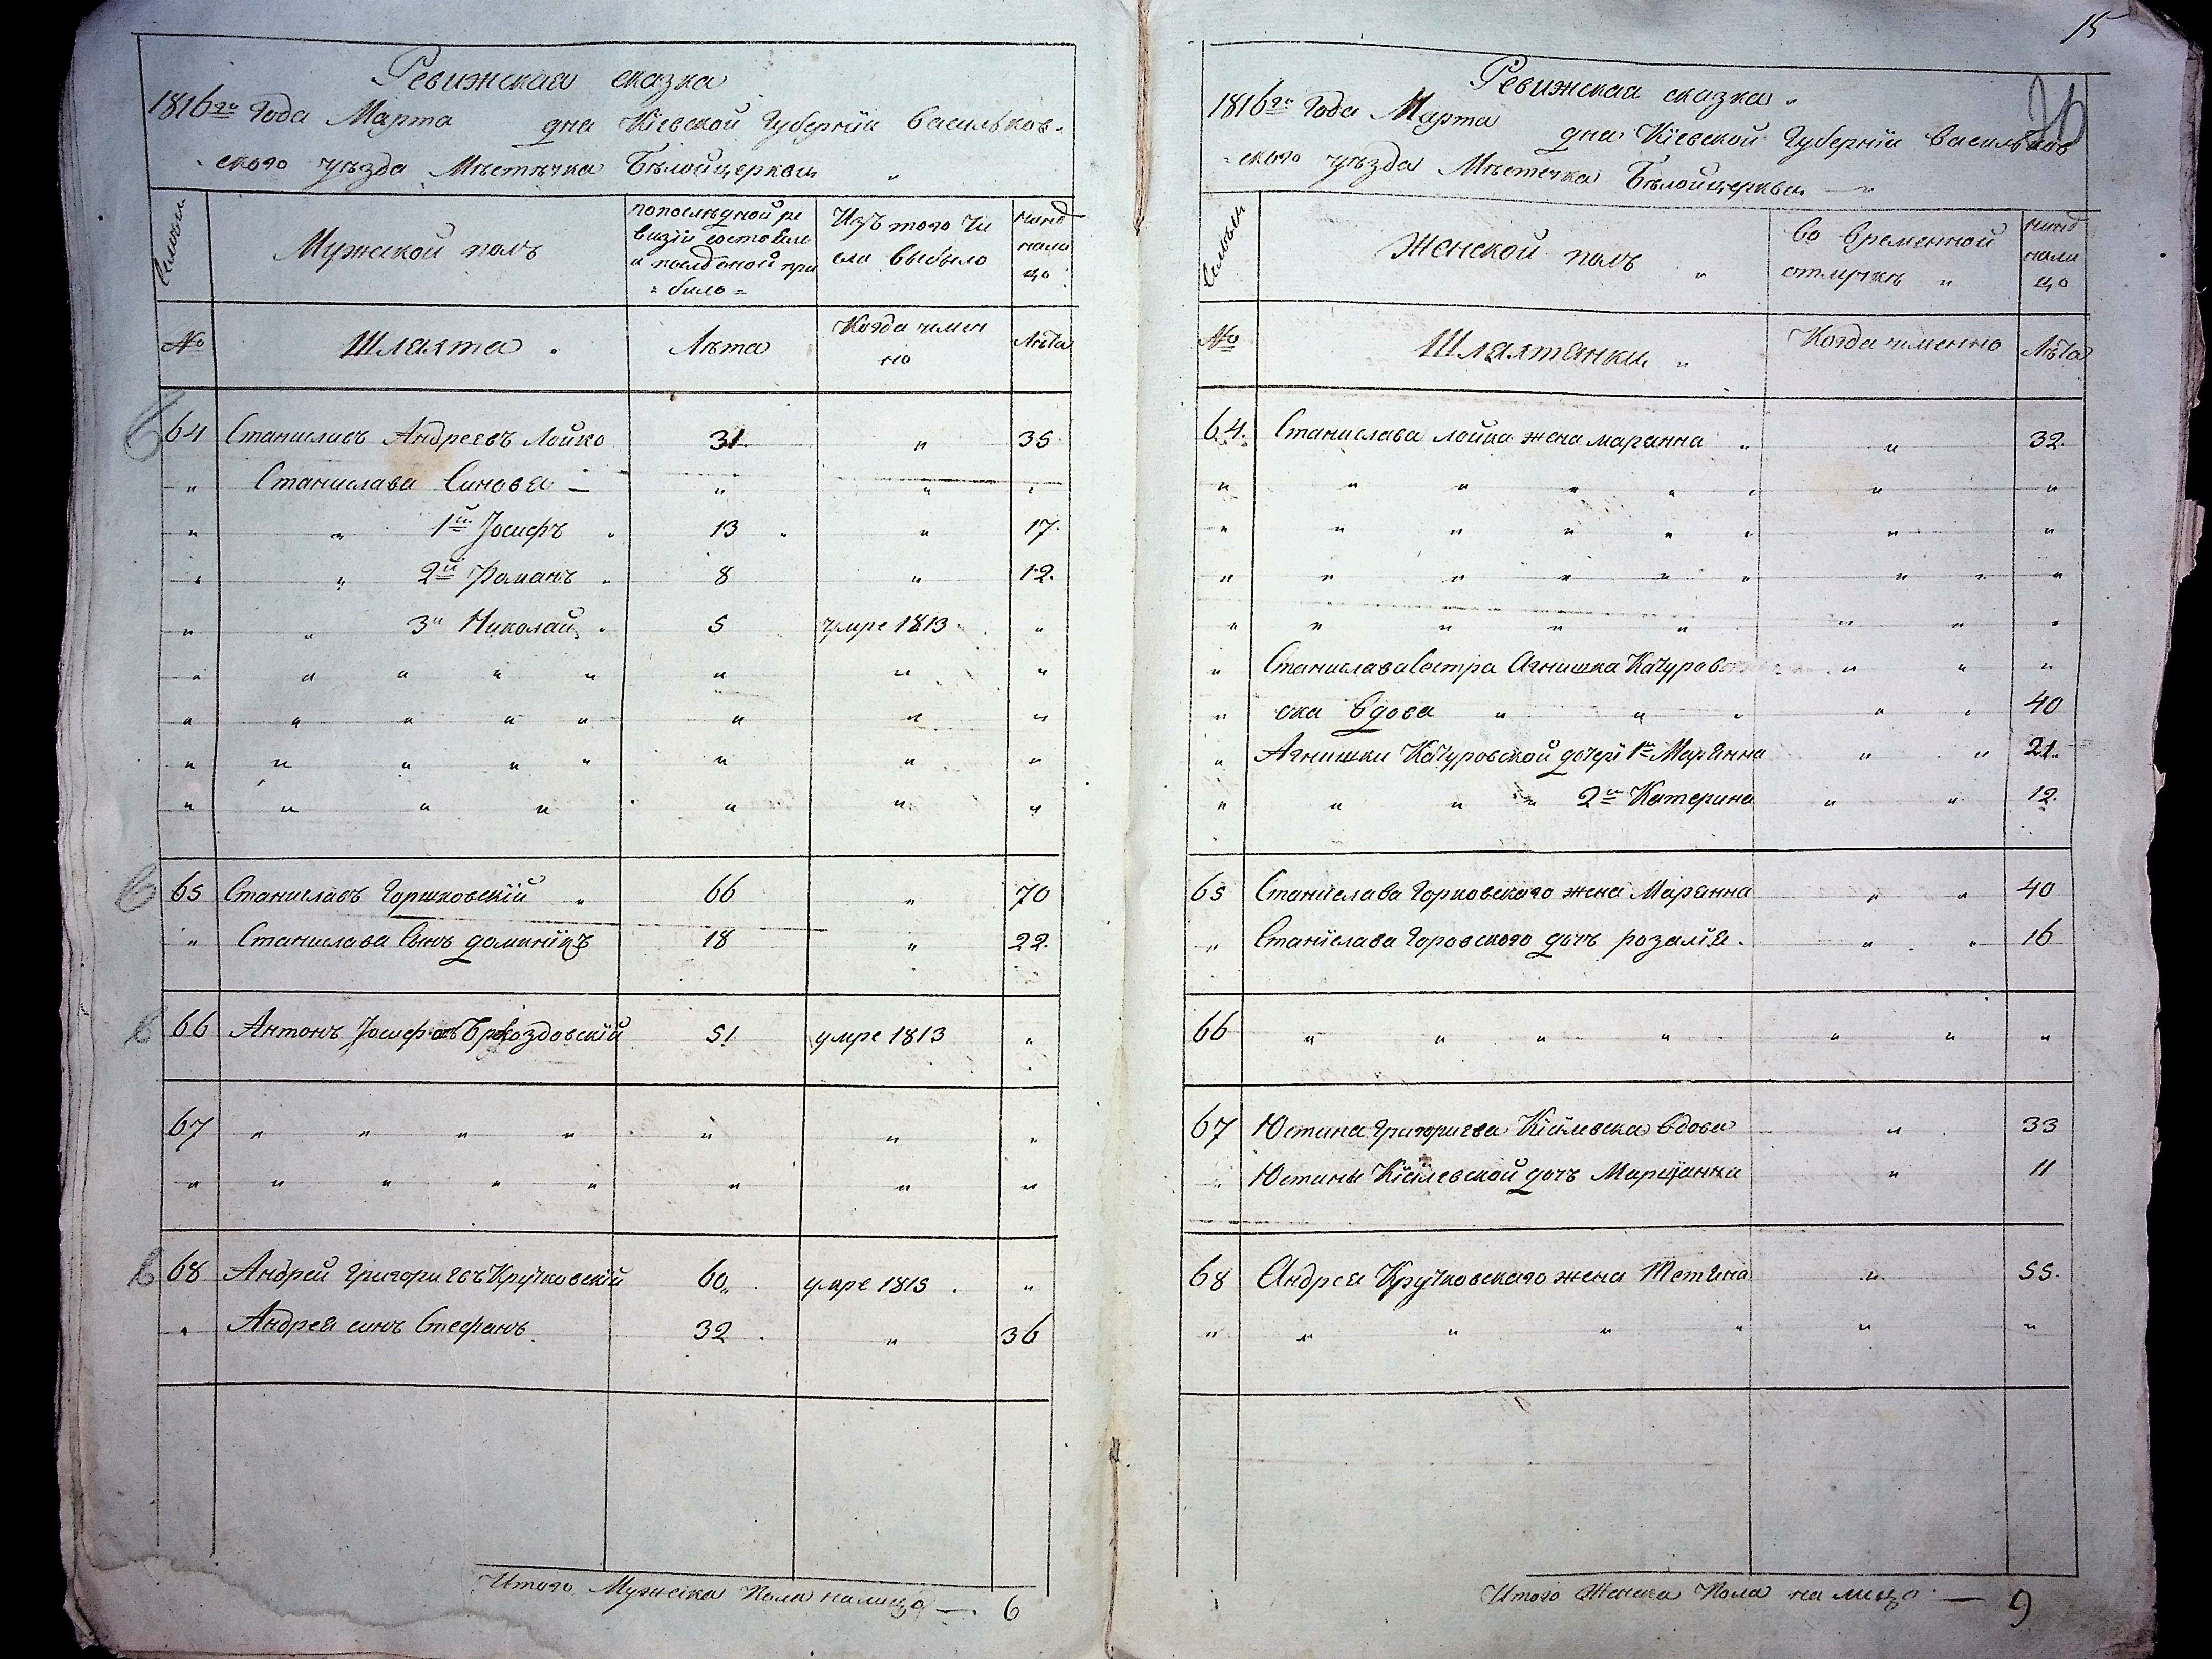 Ревижская сказка
1816го Года Марта дна Кіевской Губерніи Васильков-
ского уѣзда Мѣстѣчка Бѣлойцеркви „
Семьи
Мужской полъ
попослѣдной ре
визіи состояло
и послѣ оной при
было
Изъ того Чи
сла выбыло
нынѣ
нали
цо
№
Шляхта .
Лѣта
Когда имен
но
Лѣта
64 Станиславъ Андреевъ Лойко 31 „ 35
„ Станислава Синовя — „ „ „
„ „ 1й Іосифъ 13 „ 17.
„ „ 2й Романъ 8 „ 12.
„ „ 3й Николай 5 умре 1813 „
„ „ „ „ „ „ „ „
„ „ „ „ „ „ „ „
„ „ „ „ „ „ „ „
„ „ „ „ „ „ „
65 Станиславъ Горжковскій „ 66 „ 70
„ Станислава Сынъ доминикъ 18 „ 22.
66 Антонъ Іосифовъ 51 умре 1813 „
67 „ „ „ „ „ „ „
„ „ „ „ „ „ „ „
68 Андрей Григориевъ Кручковскій 60 умре 1815 „
„ Андрея синъ Стефанъ 32 „ 36
Итого Мужеска Пола налицо — 6
15
Ревижская сказка „
1816го Года Марта дна Кіевской Губерніи Васильков
ского уѣзда Мѣстечка Бѣлойцеркви — „
Семьи
Женской полъ „
во временной
отлучкѣ „
нынѣ
нали
цо
№
Шляхтянки „
Когда именно
Лѣта
64. Станислава лойка жена марянна „ „ 32.
„ „ „ „ „ „ „ „
„ „ „ „ „ „ „ „
„ „ „ „ „ „ „ „ „
„ „ „ „ „ „ „ „
„ Станислава Сестра Агнишка Качуров „ „ „
ска Вдова „ „ „ „ „ 40
„ Агнишки Качуровской дочери 1я Марянна „ „ 21.
„ „ „ „ 2я Катерина „ „ 12.
65 Станіслава Горковскаго жена Марянна „ „ 40
„ Станіслава Горовского дочъ розалія . „ „ 16
66 „ „ „ „ „ „ „
67 Юстина Григориева Кісілевска вдова „ 33
„ Юстины Кісілевской дочъ Мариянна „ 11
68 Андрея Кручковскаго жена Тетяна „ 55.
„ „ „ „ „ „ „
Итого Женска Пола на лицо — 9